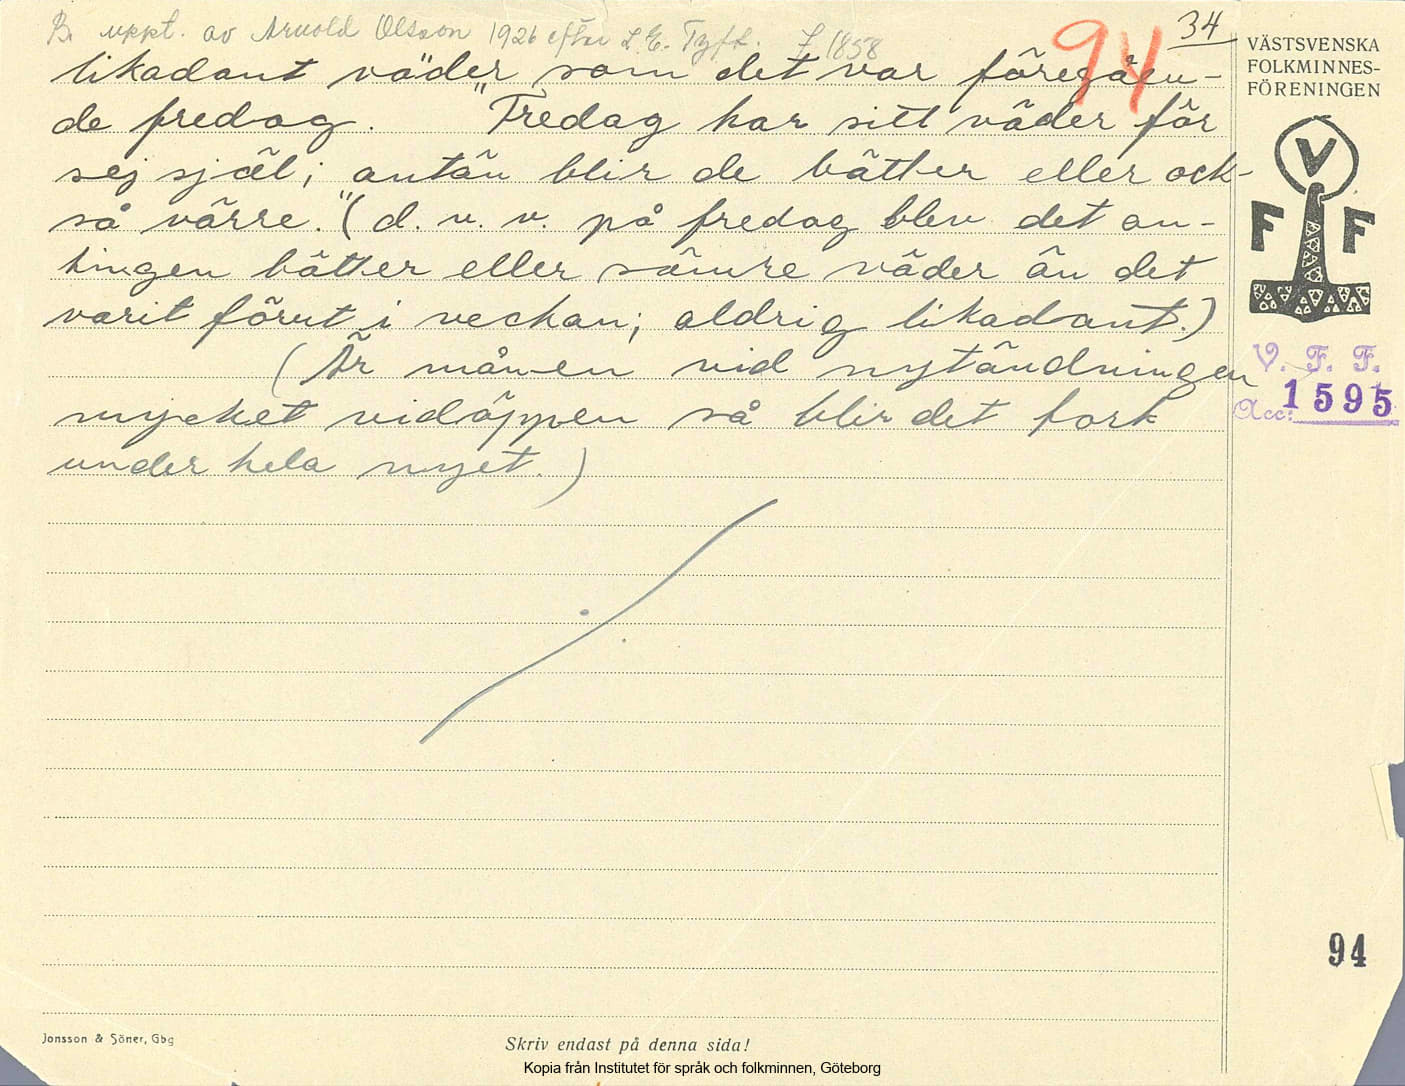 B. uppt. av Arnold Olsson 1926 efter L. E. Tyft. f. 1858
34
94
likadant väder som det var föregåen-
de fredag. "Fredag har sitt väder för
sej själ; antän blir de bätter eller ock-
så värre." (d. v. v. på fredag blev det an-
tingen bätter eller sämre väder än det
varit förut i veckan; aldrig likadant.)
(Är månen vid nytändningen
mycket vidöppen så blir det tork
under hela nyet.)
VÄSTSVENSKA
FOLKMINNES-
FÖRENINGEN
V
F F
V. F. F.
Acc: 1595
94
Jonsson & Söner, Gbg
Skriv endast på denna sida!
Kopia från Institutet för språk och folkminnen, Göteborg